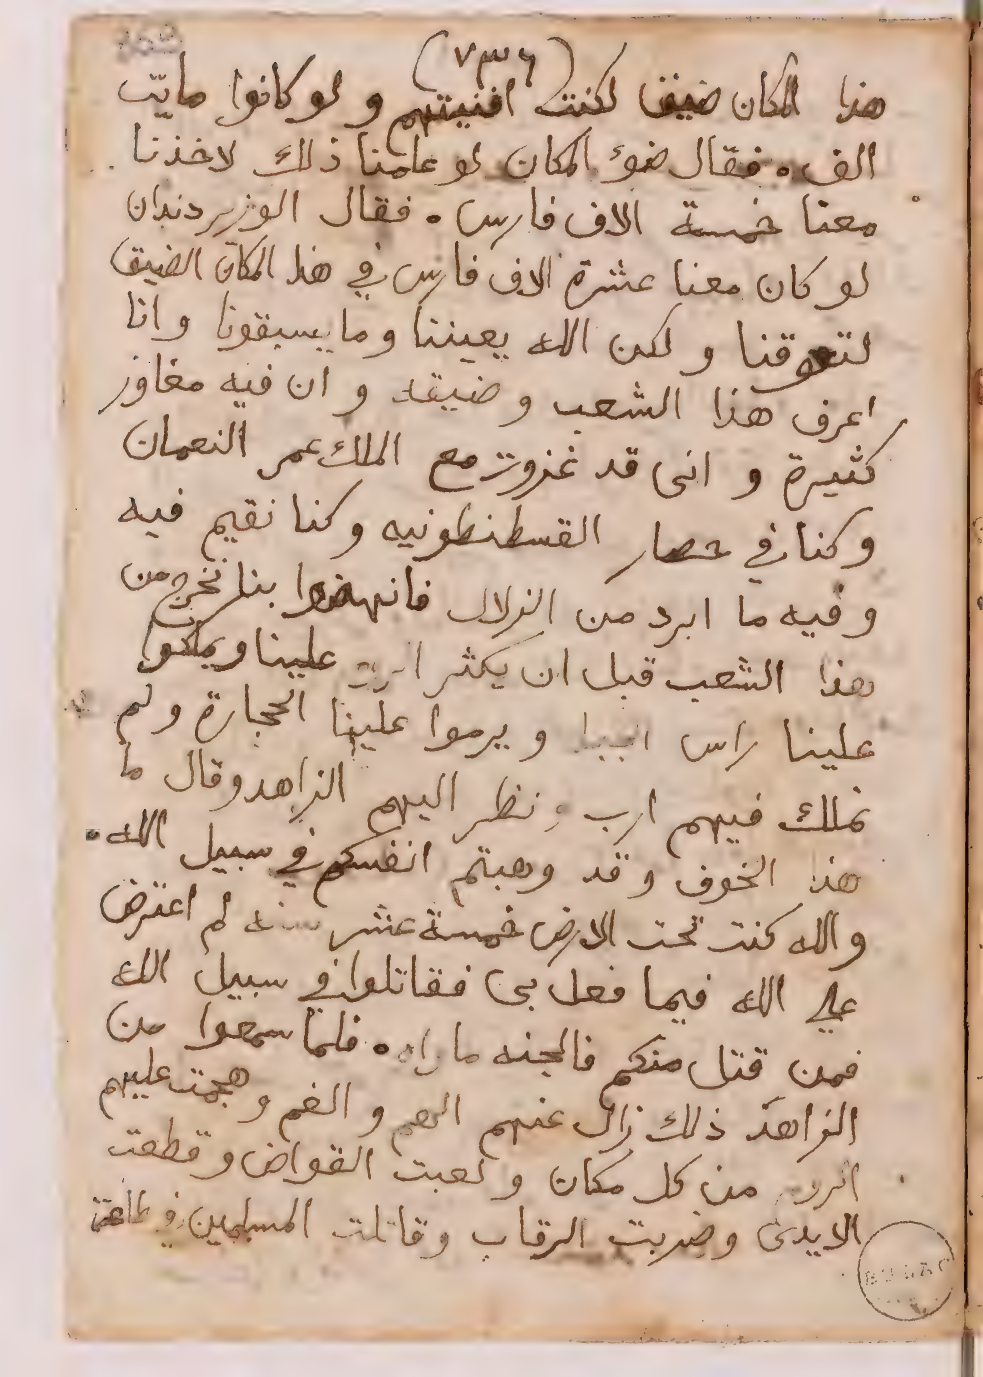 (٧٣٦)
هذا المكان ضيق لكنت افنيتهم ولو كانوا مايت
الف . فقال ضوء المكان لو علمنا ذلك لاخذنا
معنا خمسة الاف فارس . فقال الوزير دندان
لو كان معنا عشرة الاف فارس في هذا المكان الضيق
لتعوقنا ولكن الله يعيننا وما يسبقونا وانا
اعرف هذا الشعب وضيقه وان فيه مغاور
كثيرة وانى قد غزوت مع الملك عمر النعمان
وكنا في حصار القسطنطونيه وكنا نقيم فيه
وفيه ما ابرد من الزلال فانهضوا بنا نخرج من
هذا الشعب قبل ان يكثر علينا ويملكوا
علينا راس ويرموا علينا الحجارة ولم
نملك فيهم ارب ونظر اليهم الزاهد وقال ما
هذا الخوف وقد وهبتم انفسكم في سبيل الله .
والله كنت تحت الارض خمسة عشر سنه لم اعترض
على الله فيما فعل بى فقاتلوا في سبيل الله
فمن قتل منكم فالجنه ماواه . فلما سمعوا من
الزاهد ذلك زال عنهم الهم والغم وهجمت عليهم
الروم من كل مكان ولعبت القواض وقطعت
الايدى وضربت الرقاب وقاتلت المسلمين في طاعة
BULAC